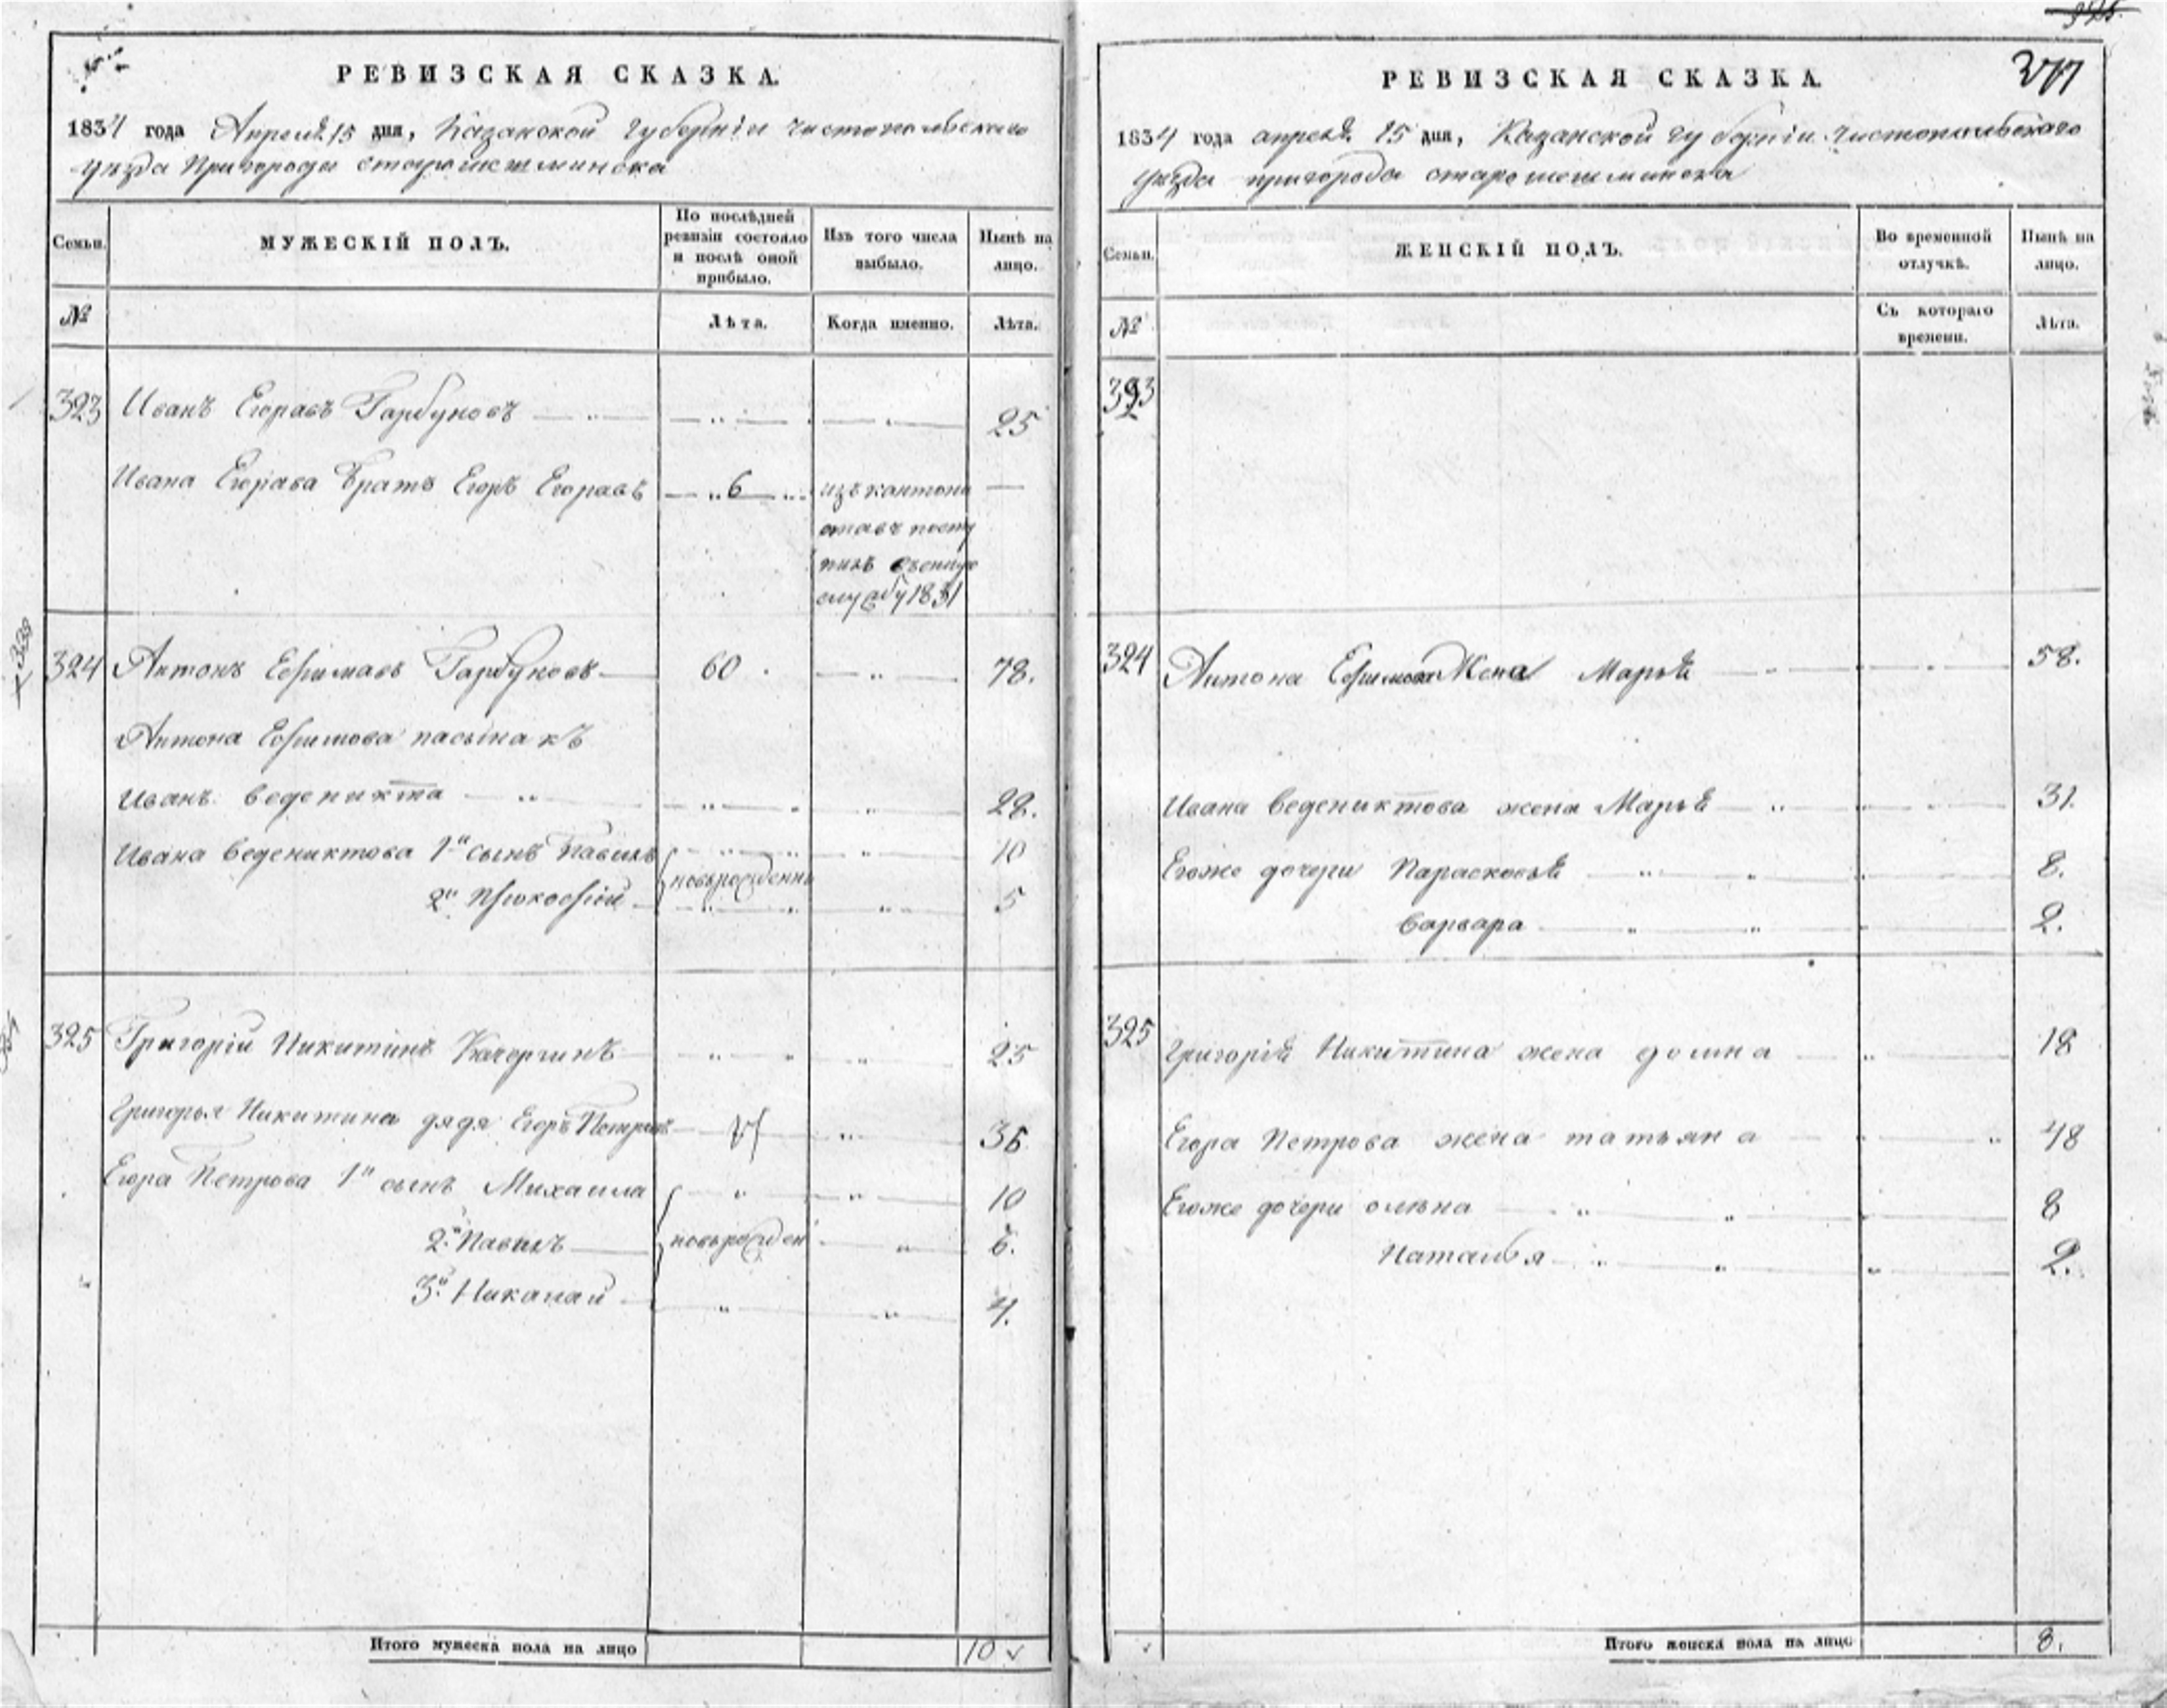 РЕВИЗСКАЯ СКАЗКА.
1834 года Апреля 15 дня, Казанской губерніи Чистопольскаго
уѣзда Пригорода старошешминска
Семьи.
МУЖЕСКІЙ ПОЛЪ.
По послѣдней ревизіи состояло и послѣ оной прибыло.
Изъ того числа выбыло.
Нынѣ на лицо.
№
Лѣта.
Когда именно.
Лѣта.
323 Иванъ Егоравъ Гарбуновъ 25
Ивана Егорава братъ Егоръ Егоравъ 6 изъ кантони
ставъ посту
пилъ
службу 1831
324 Антонъ Ефимавъ Гарбуновъ 60 78.
Антона Ефимова пасынакъ
Иванъ ведениктa 28.
Ивана ведениктова 1й сынъ Павилъ 10
новърожденны
2й Прокофій 5
325 Григорій Никитинъ Качергинъ 25
Григорья Никитина дядя Егоръ Петравъ 36
Егора Петрова 1й сынъ Михаила 10
2й Павилъ новърожден 6.
3й Никалай 4.
Итого мужеска пола на лицо 10
377
РЕВИЗСКАЯ СКАЗКА.
1834 года апреля 15 дня, Казанской губерніи Чистопольскаго
уѣзда пригорода старошешминска
Семьи.
ЖЕНСКІЙ ПОЛЪ.
Во временной отлучкѣ.
Нынѣ на лицо.
№
Съ котораго времени.
Лѣта.
323
324 Антона Ефимова Жена Марьѣ 58.
Ивана ведениктова жена Марьѣ 31.
Егоже дочери Парасковьѣ 8.
Варвара 2.
325 Григорія Никитина жена домна 18
Егора Петрова жена татьяна 48
Егоже дочери олѣна 8
Наталья 2.
Итого женска пола на лицо 8.